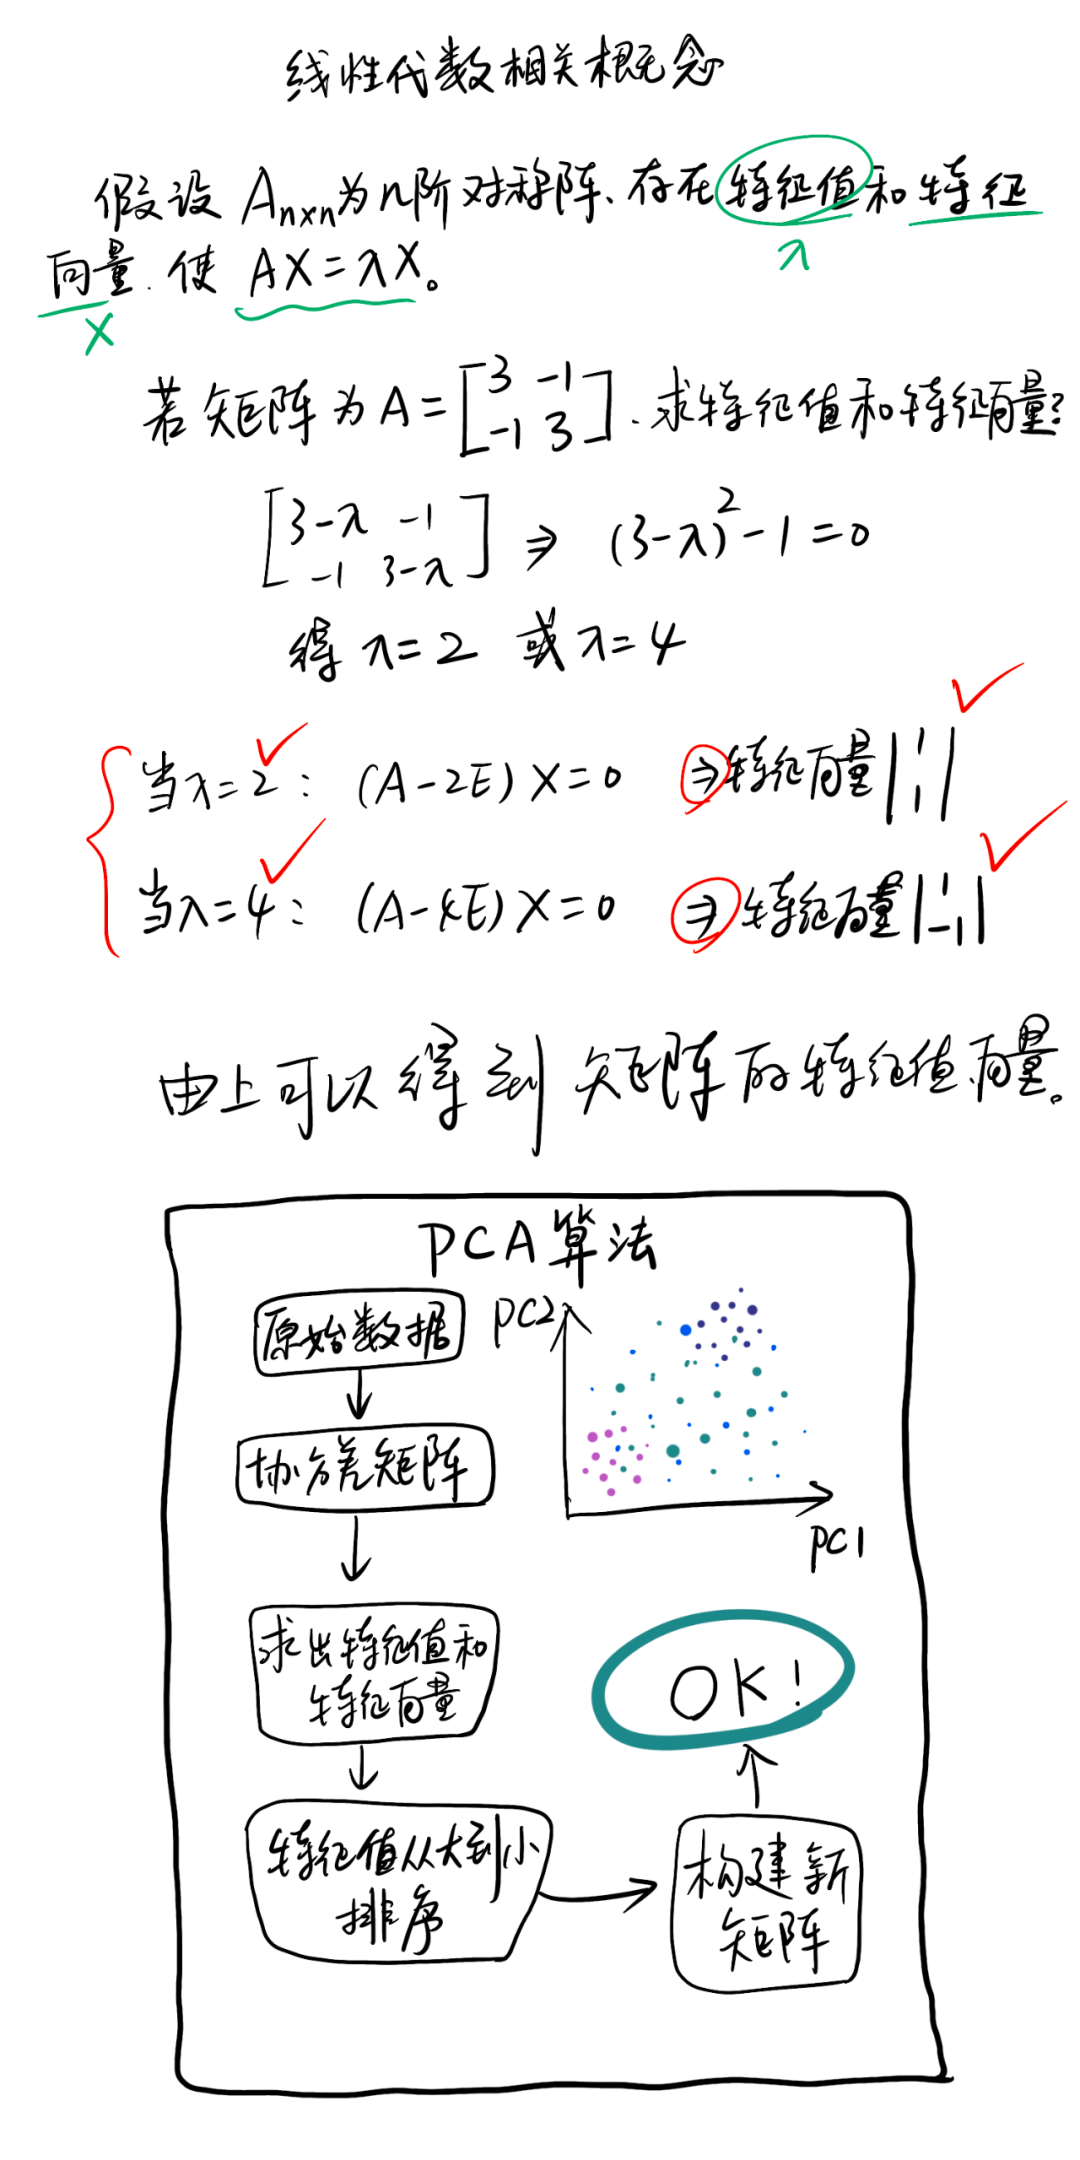 线性代数相关概念
假设 Aₙₓₙ为n阶对称阵、存在特征值和特征
λ
向量. 使 AX=λX。
X
若矩阵为A=[3 -1
-1 3]. 求特征值和特征向量?
[3-λ -1
-1 3-λ] ⇒ (3-λ)²-1=0
得 λ=2 或 λ=4
当λ=2: (A-2E)X=0 ⇒特征向量|1
1|
当λ=4: (A-4E)X=0 ⇒特征向量|1
-1|
由上可以得到矩阵的特征值、向量。
PCA算法
原始数据
PC2
协方差矩阵
PC1
求出特征值和
特征向量
OK!
特征值从大到小
排序
构建新
矩阵